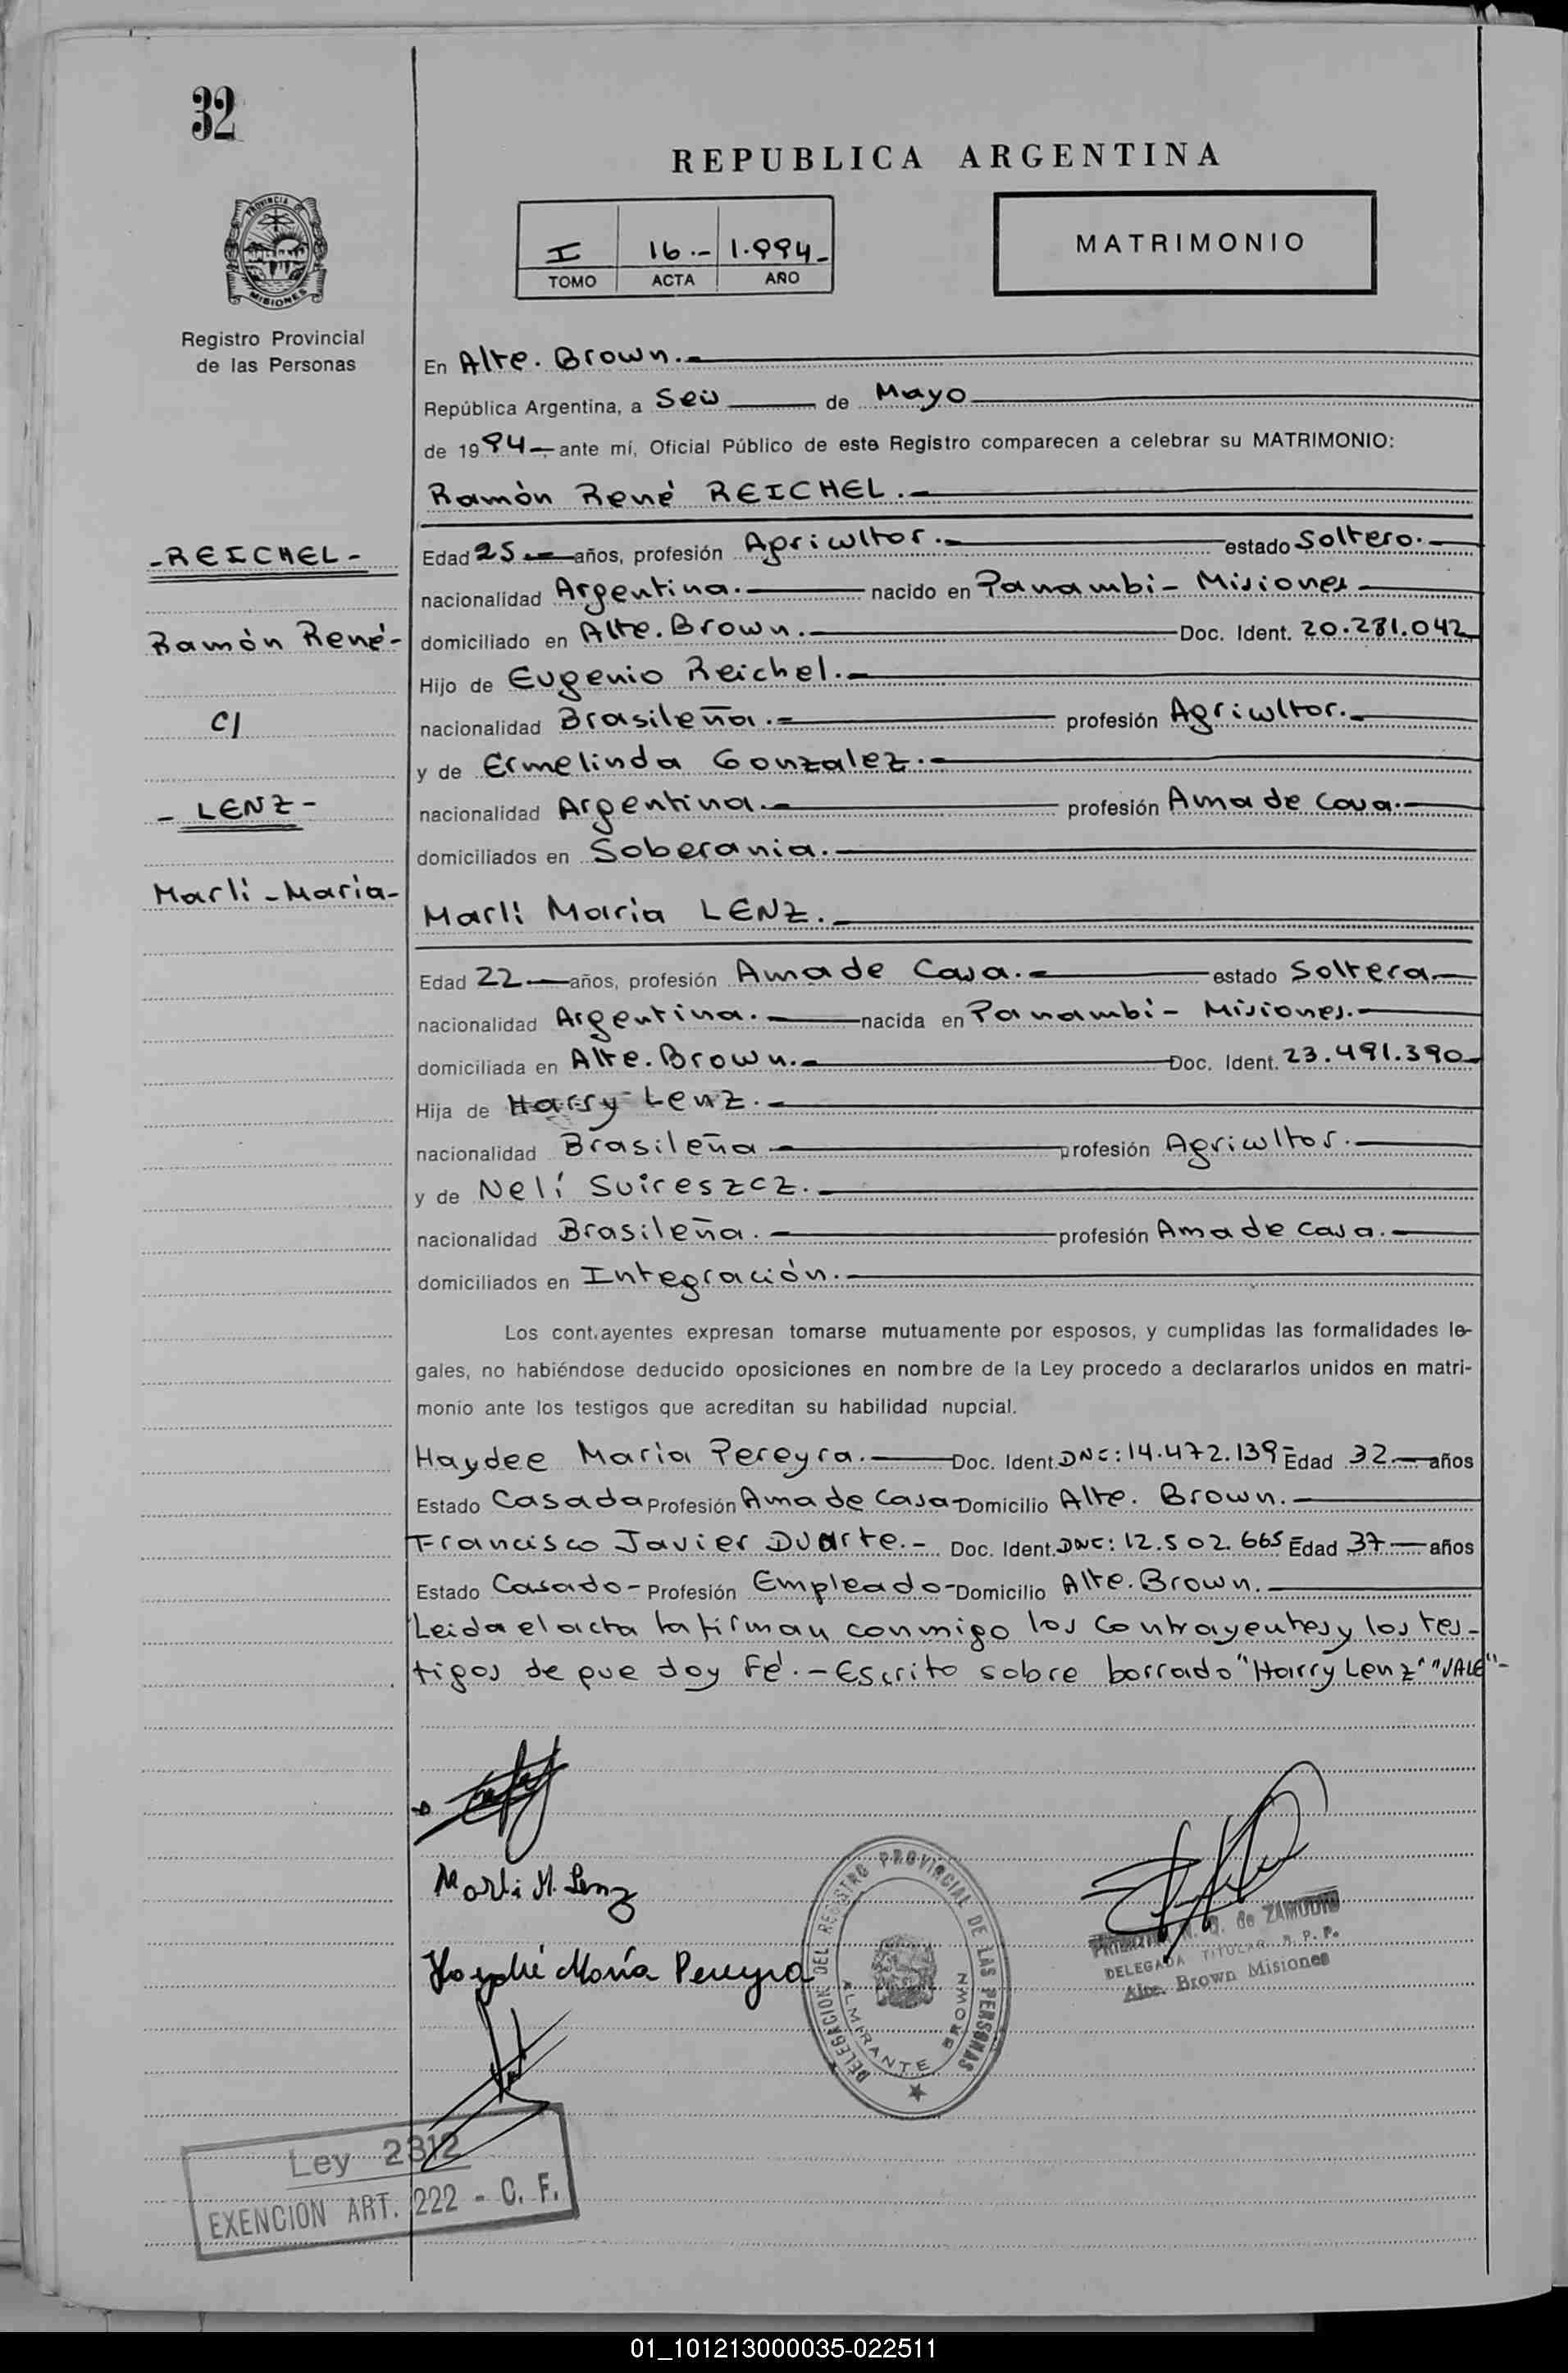 32
REPUBLICA ARGENTINA
PROVINCIA DE
MISIONES
Registro Provincial
de las Personas
I 16.- 1.994-
TOMO ACTA AÑO
MATRIMONIO
En Alte. Brown.-
República Argentina, a Seis de Mayo
de 1994- ante mí, Oficial Público de este Registro comparecen a celebrar su MATRIMONIO:
Ramón René REICHEL.-
-REICHEL-
Edad 25.- años, profesión Agricultor.- estado Soltero.-
nacionalidad Argentina.- nacido en Panambí- Misiones
Ramón René-
domiciliado en Alte. Brown.- Doc. Ident. 20.281.042
Hijo de Eugenio Reichel.-
C/
nacionalidad Brasileña.- profesión Agricultor.-
y de Ermelinda Gonzalez.-
- LENZ -
nacionalidad Argentina.- profesión Ama de Casa.-
domiciliados en Soberania.-
Marlí-María-
Marlí María LENZ.-
Edad 22.- años, profesión Ama de Casa.- estado Soltera.-
nacionalidad Argentina.- nacida en Panambí- Misiones.-
domiciliada en Alte. Brown.- Doc. Ident. 23.491.390-
Hija de Harry Lenz.-
nacionalidad Brasileña.- profesión Agricultor.-
y de Nelí Suireszcz.-
nacionalidad Brasileña.- profesión Ama de casa.-
domiciliados en Integración.-
Los contrayentes expresan tomarse mutuamente por esposos, y cumplidas las formalidades le-
gales, no habiéndose deducido oposiciones en nombre de la Ley procedo a declararlos unidos en matri-
monio ante los testigos que acreditan su habilidad nupcial.
Haydee María Pereyra.- Doc. Ident. DNI: 14.472.139- Edad 32.- años
Estado Casada Profesión Ama de Casa- Domicilio Alte. Brown.-
Francisco Javier Duarte.- Doc. Ident. DNI: 12.502.665 Edad 37- años
Estado Casado- Profesión Empleado- Domicilio Alte. Brown.-
Leida el acta la firman conmigo los Contrayentes y los tes-
tigos de que doy Fé.- Escrito sobre borrado "Harry Lenz" "VALE"-
Marli M. Lenz
Haydeé María Pereyra
DELEGACION DEL REGISTRO PROVINCIAL DE LAS PERSONAS
ALMIRANTE BROWN
de ZAMUDIO
DELEGADA TITULAR R. P. P.
Alte. Brown Misiones
Ley 2312
EXENCION ART. 222 - C. F.
01_101213000035-022511